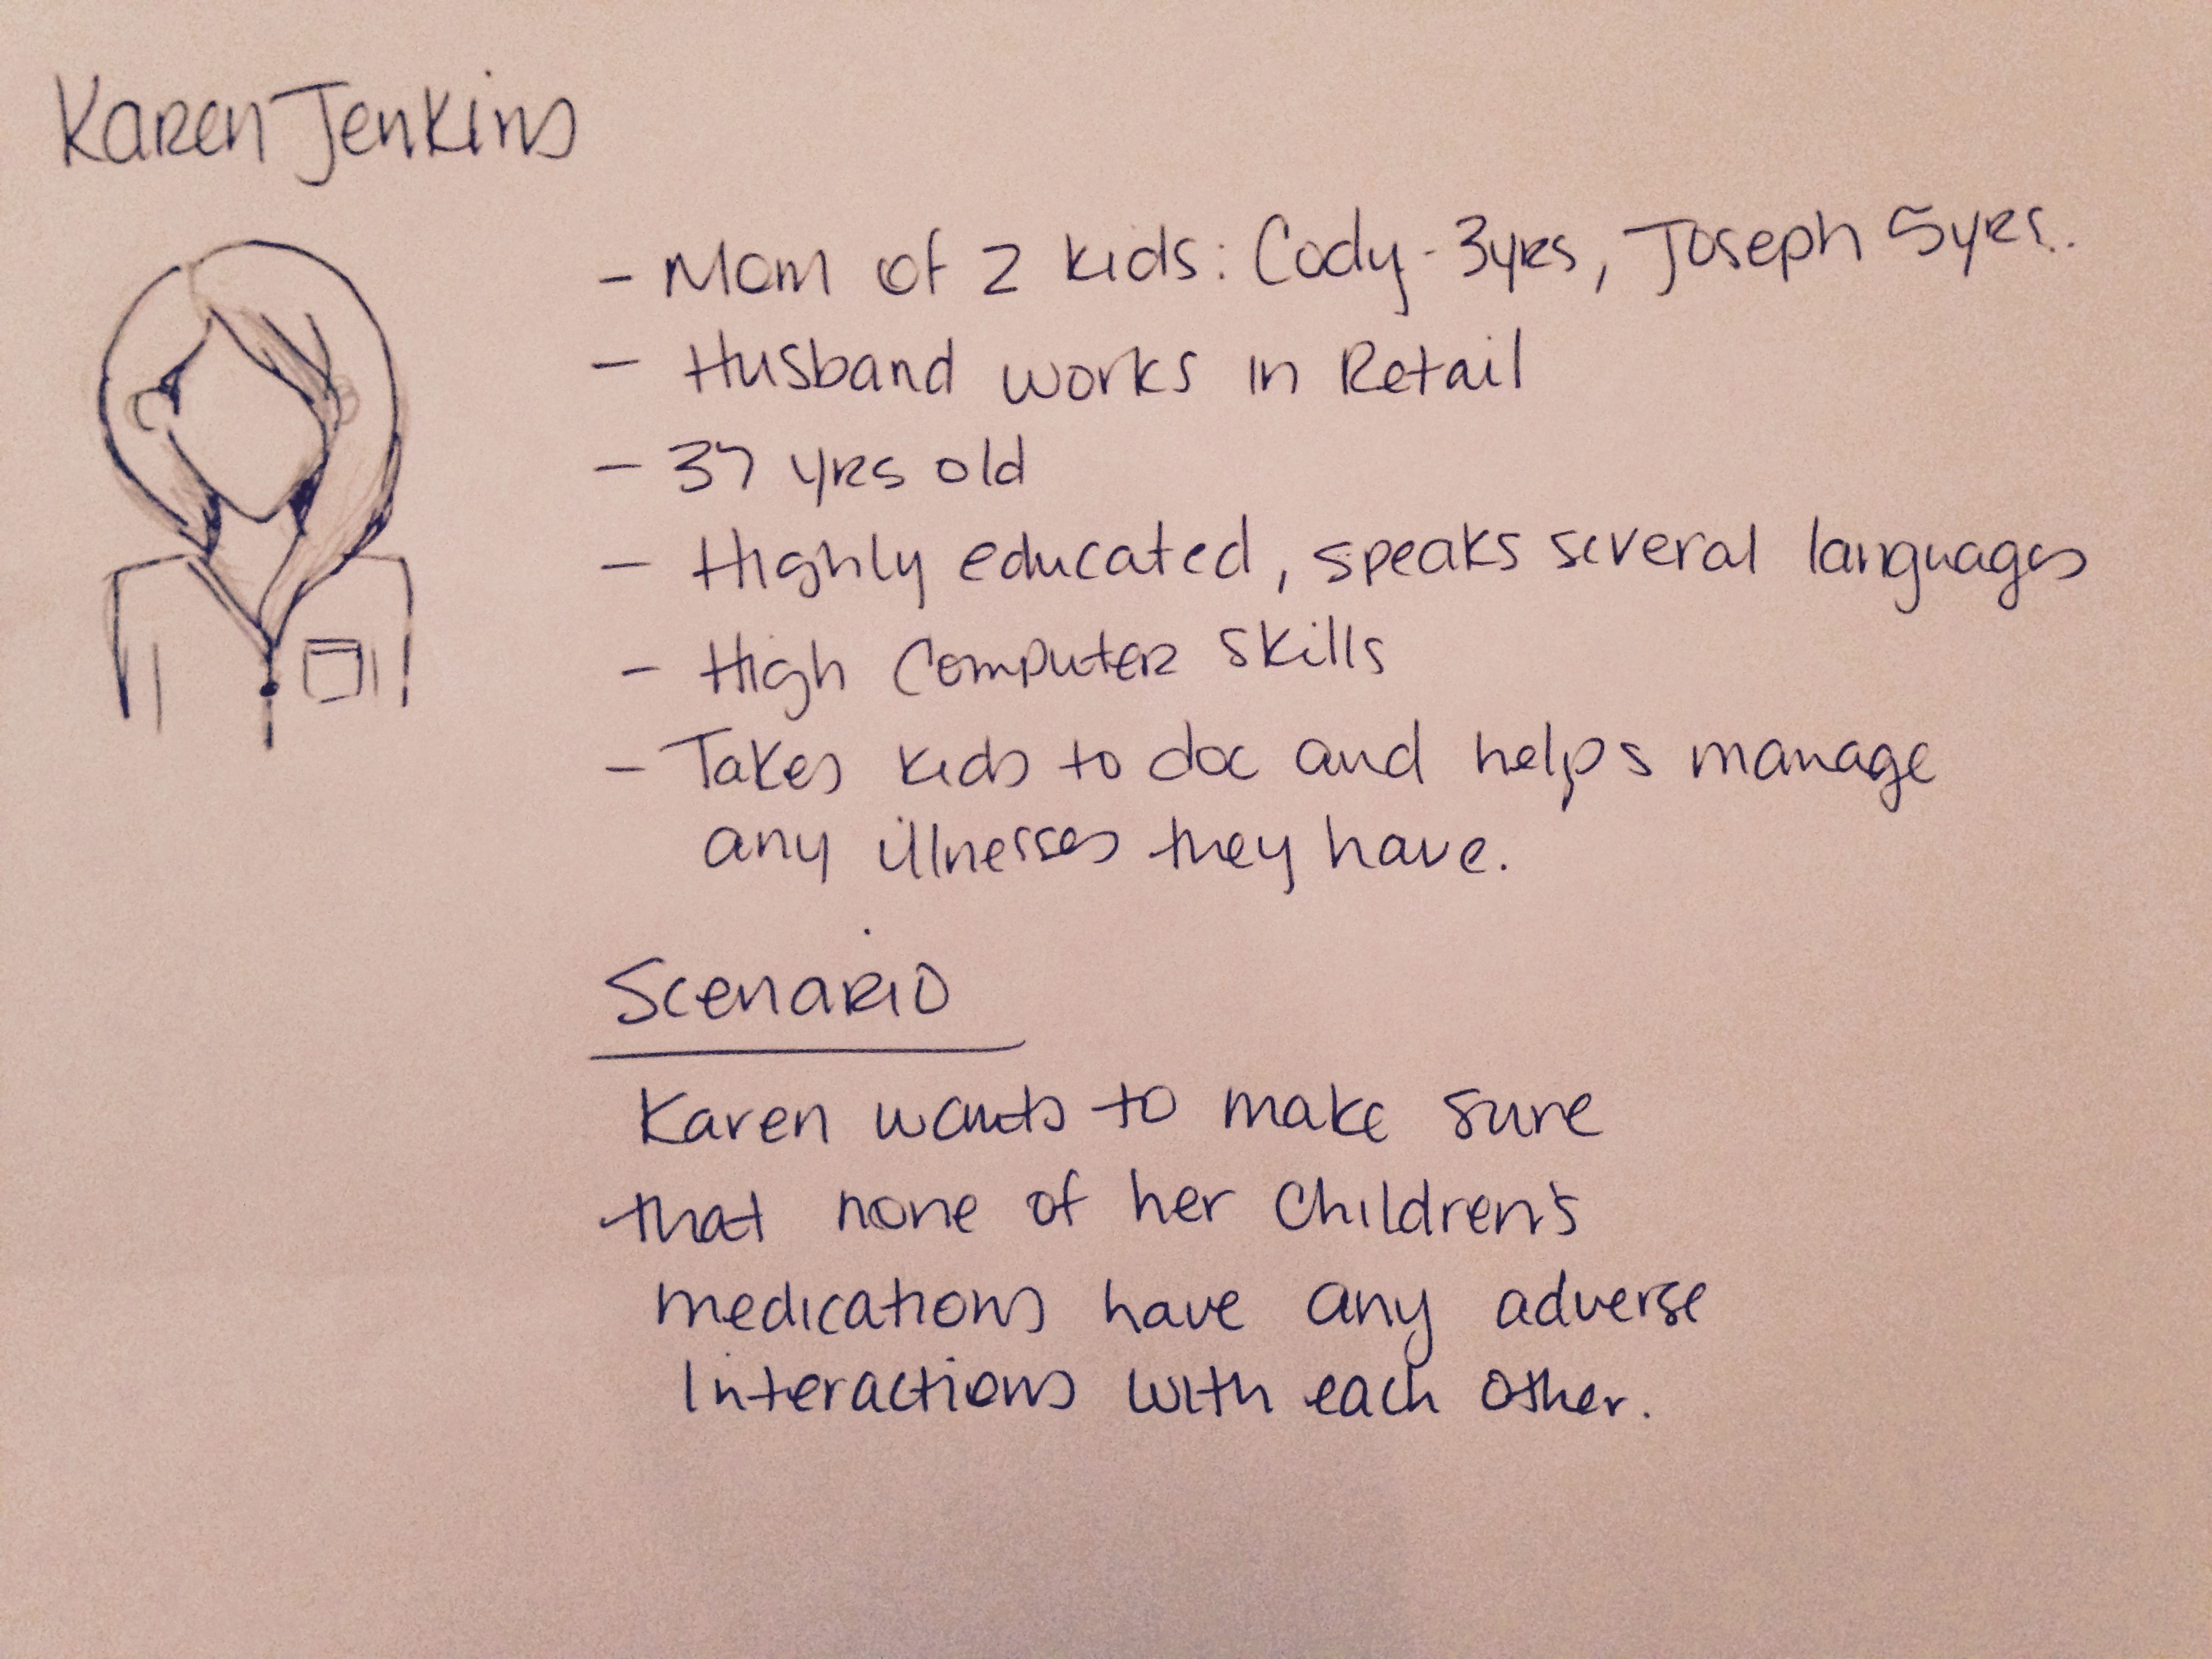 Karen Jenkins
- Mom of 2 kids: Cody - 3yrs, Joseph 5yrs.
- Husband works in Retail
- 37 yrs old
- Highly educated, speaks several languages
- High Computer skills
- Takes kids to doc and helps manage
any illnesses they have.
Scenario
Karen wants to make sure
that none of her children's
medications have any adverse
interactions with each other.